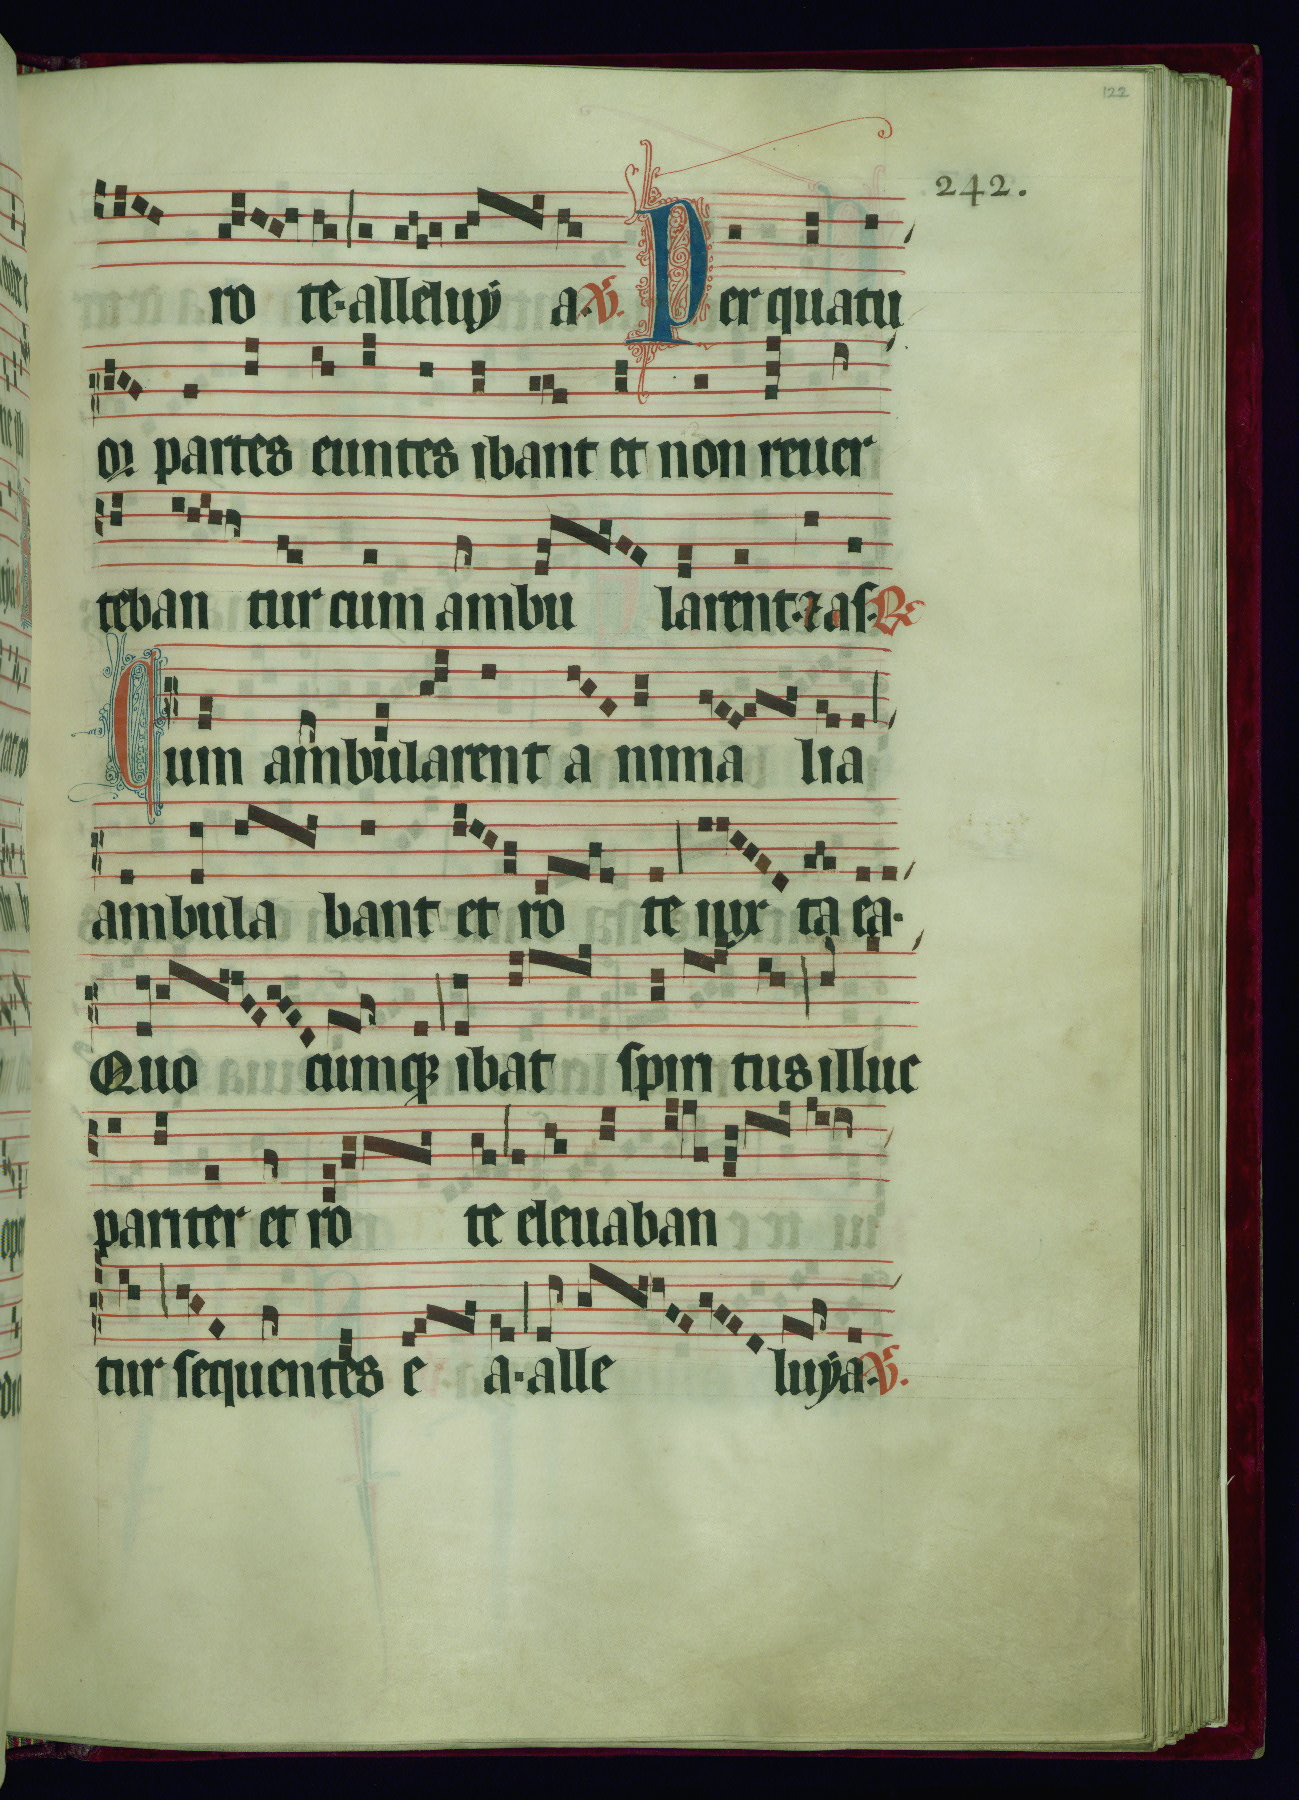 122
242.
ro te·alleluÿ a·℣. Per quatu
oꝛ partes euntes ibant et non reuer
teban tur cum ambu larent·⁊ aſ·℟
Cum ambularent a nima lia
ambula bant et ro te iux ta ea·
Quo cumqꝫ ibat ſpiri tus illuc
pariter et ro te eleuaban
tur ſequentes e a·alle luÿa·℣.